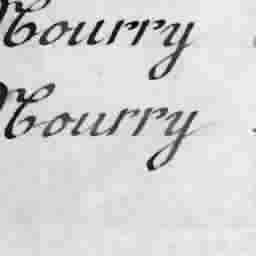 Mourry
Mourry